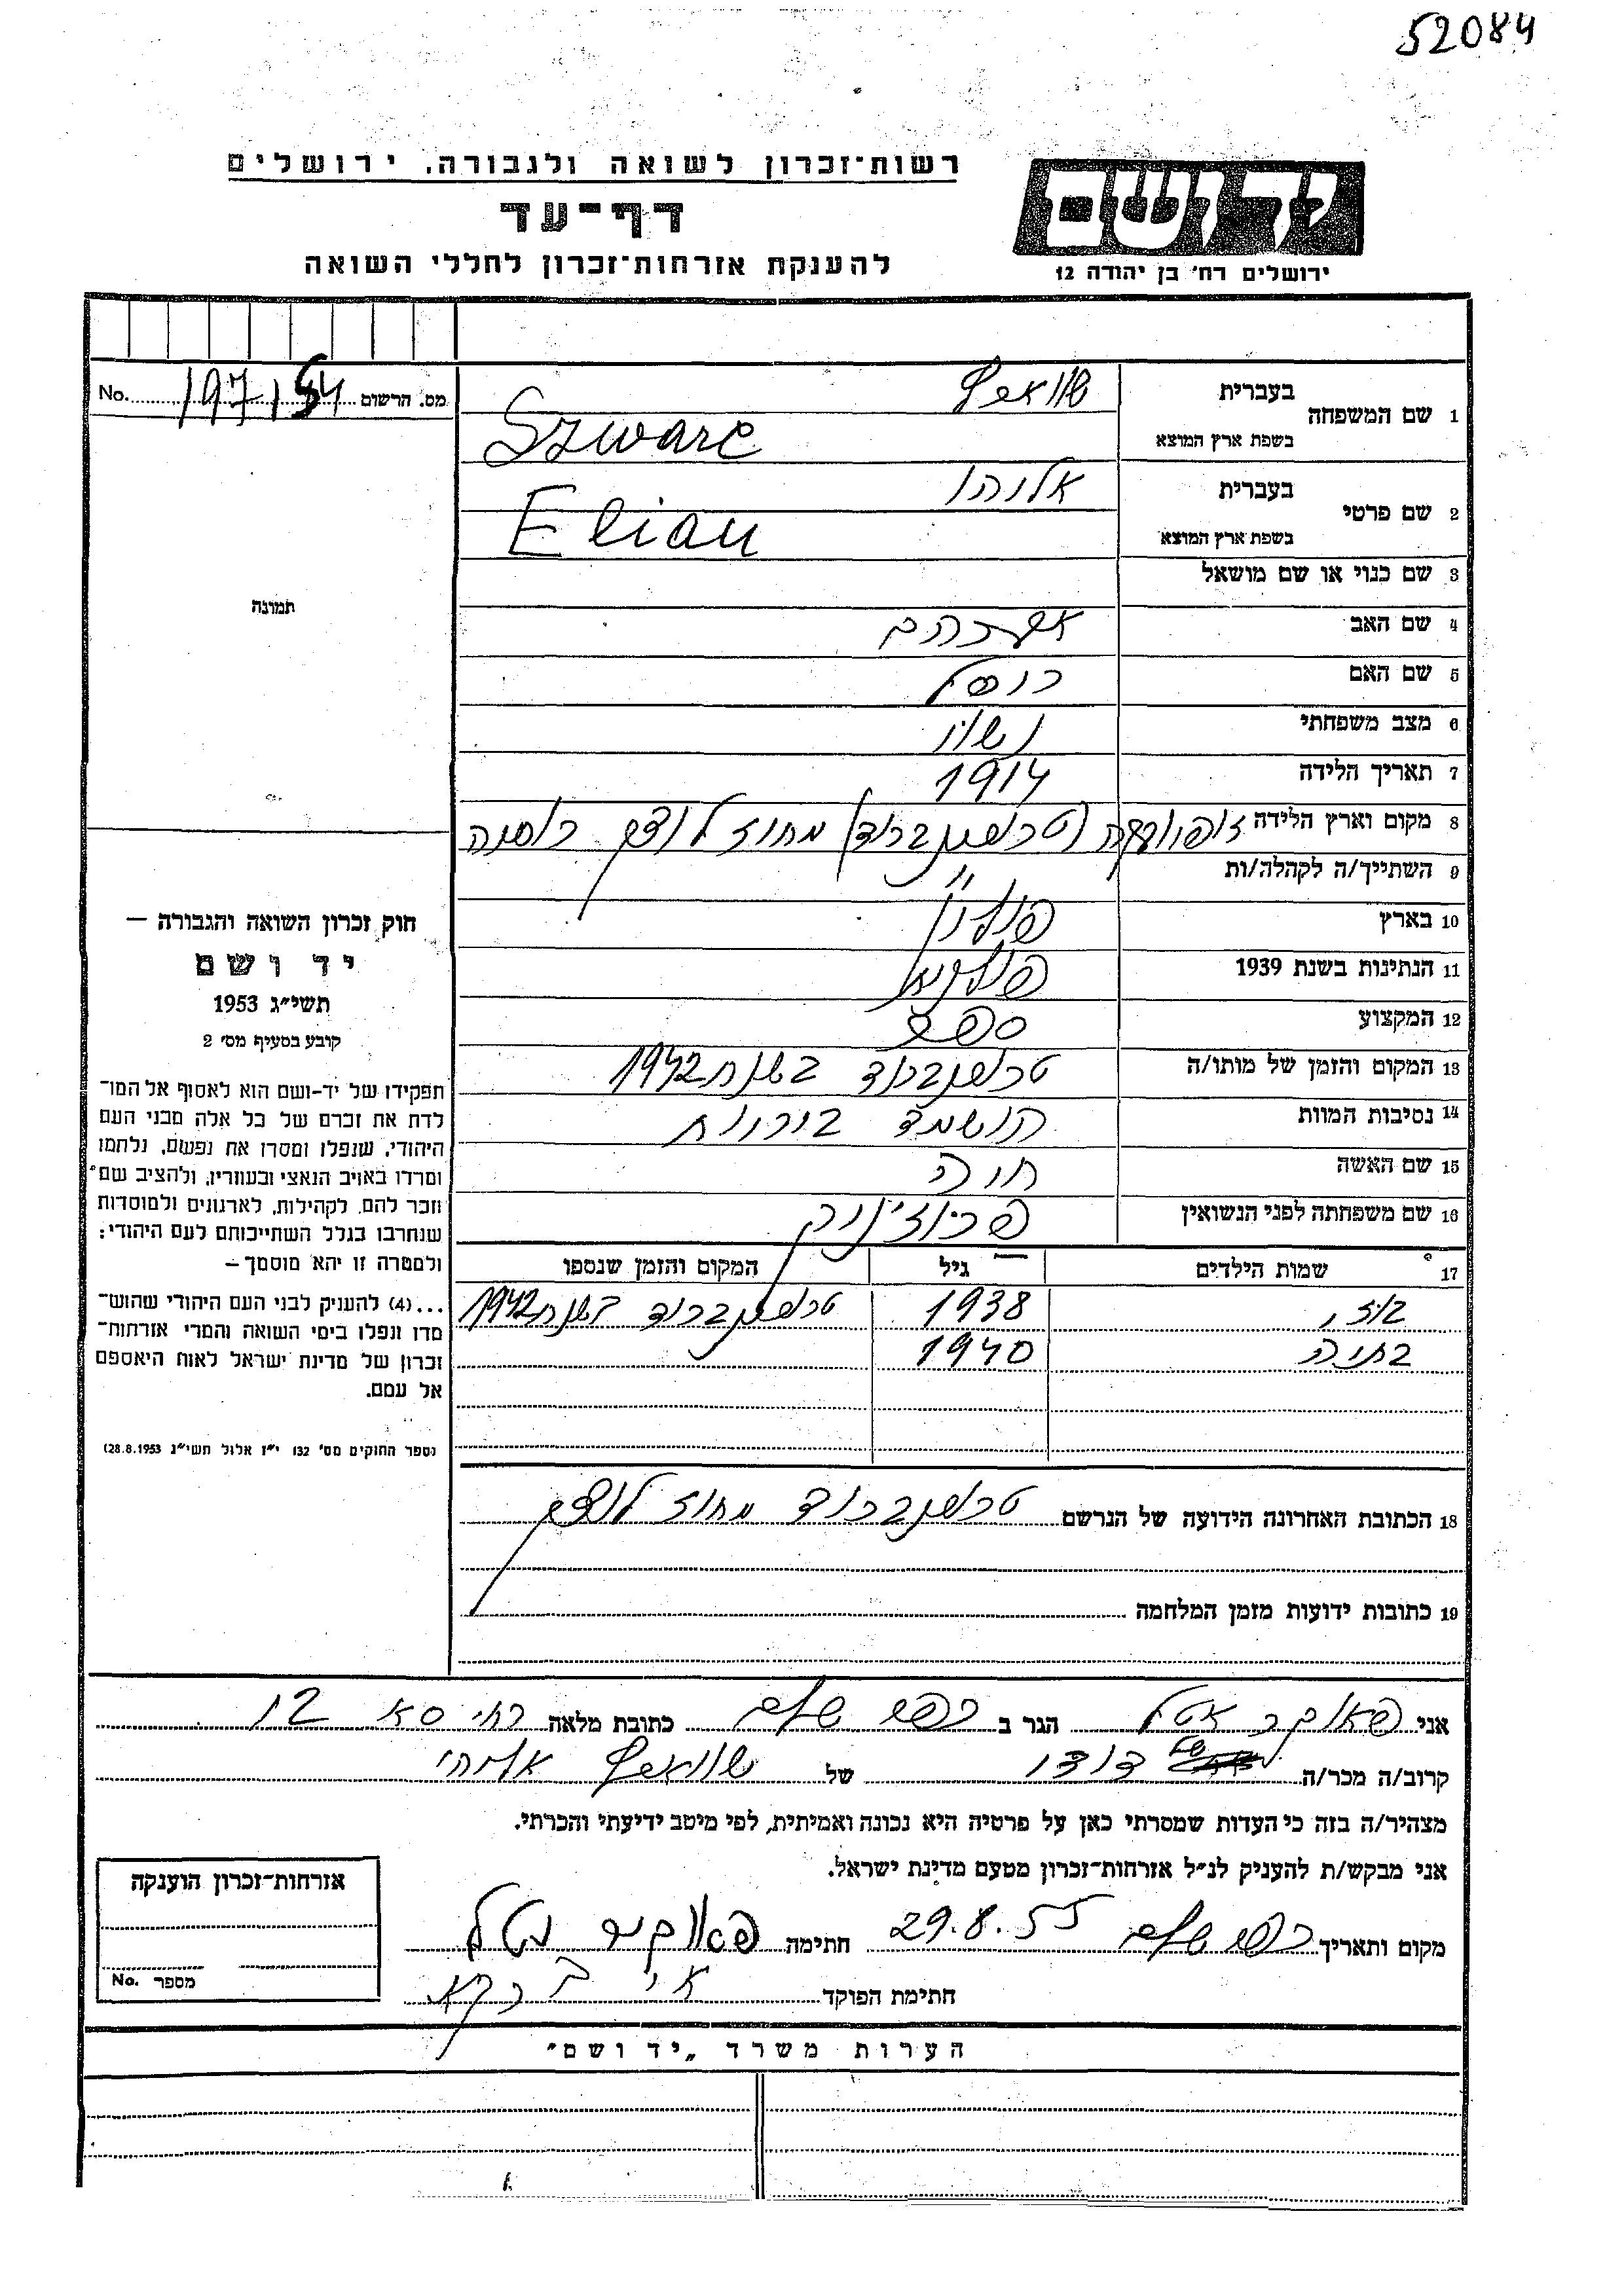 52084
רשות־זכרון לשואה ולגבורה, ירושלים
דף־עד
להענקת אזרחות־זכרון לחללי השואה
יד ושם
ירושלים רח׳ בן יהודה 12
No. 197154 מס. הרשום
1 שם המשפחה בעברית שווארץ
בשפת ארץ המוצא Szwarc
2 שם פרטי בעברית אליהו
בשפת ארץ המוצא Eliau
3 שם כנוי או שם מושאל
4 שם האב אברהם
5 שם האם
6 מצב משפחתי נשוי
7 תאריך הלידה 1914
8 מקום וארץ הלידה (טרשנברוד) מחוז לוצק
9 השתייך/ה לקהלה/ות
10 בארץ פולין
11 הנתינות בשנת 1939
12 המקצוע ספר
13 המקום והזמן של מותו/ה טרשנברוד בשנת 1942
14 נסיבות המוות הושמד בורות
15 שם האשה חוה
16 שם משפחתה לפני הנשואין
17 שמות הילדים גיל המקום והזמן שנספו
1938 טרשנברוד בשנת 1942
בתיה 1940
18 הכתובת האחרונה הידועה של הנרשם טרשנברוד מחוז לוצק
19 כתובות ידועות מזמן המלחמה
תמונה
חוק זכרון השואה והגבורה –
יד ושם
תשי״ג 1953
קובע בסעיף מס׳ 2
תפקידו של יד-ושם הוא לאסוף אל המו־
לדת את זכרם של כל אלה מבני העם
היהודי, שנפלו ומסרו את נפשם, נלחמו
ומרדו באויב הנאצי ובעוזריו, ולהציב שם
וזכר להם, לקהילות, לארגונים ולמוסדות
שנחרבו בגלל השתייכותם לעם היהודי;
ולמטרה זו יהא מוסמך –
...(4) להעניק לבני העם היהודי שהוש־
מדו ונפלו בימי השואה והמרי אזרחות־
זכרון של מדינת ישראל לאות היאספם
אל עמם.
(ספר החוקים מס׳ 132 י״ז אלול תשי״ג 28.8.1953)
אני הגר ב כפר שלם כתובת מלאה 12
קרוב/ה מכר/ה של דודו של שווארץ אליהו
מצהיר/ה בזה כי העדות שמסרתי כאן על פרטיה היא נכונה ואמיתית, לפי מיטב ידיעתי והכרתי.
אני מבקש/ת להעניק לנ״ל אזרחות־זכרון מטעם מדינת ישראל.
מקום ותאריך כפר שלם 29.8.55 חתימה
חתימת הפוקד
אזרחות־זכרון הוענקה
מספר No.
הערות משרד „יד ושם״